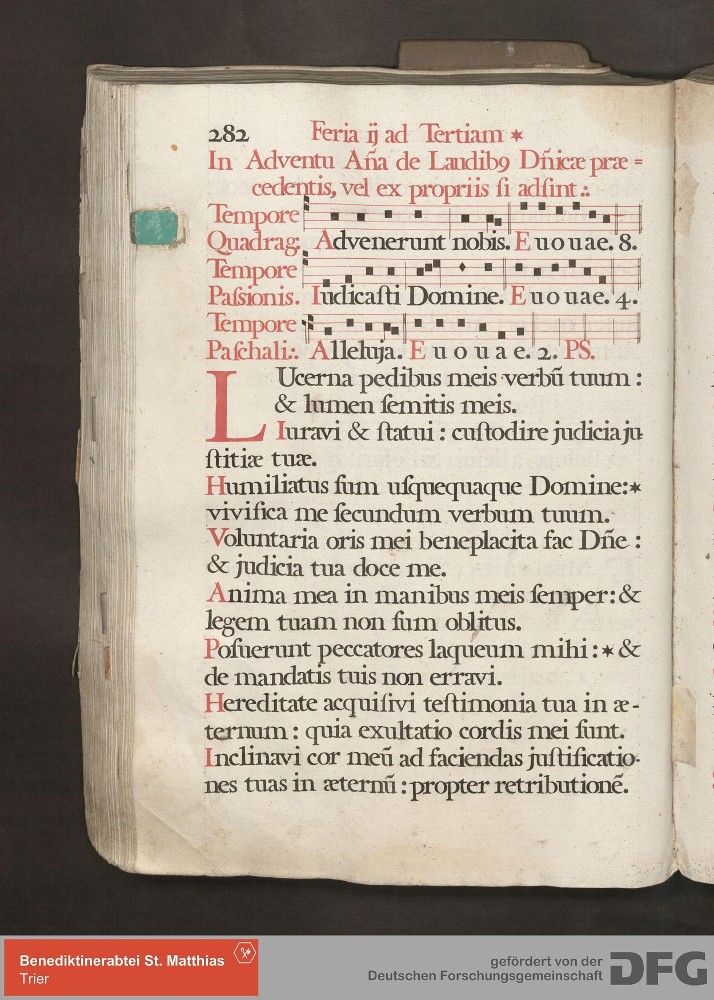 282 Feria ij ad Tertiam *
In Adventu Aña de Laudib9 Dñicæ præ=
cedentis, vel ex propriis ſi adſint.:
Tempore
Quadrag: Advenerunt nobis. E u o u ae. 8.
Tempore
Paſsionis. Iudicaſti Domine. E u o u ae. 4.
Tempore
Paſchali.: Alleluja. E u o u a e. 2. PS.
LUcerna pedibus meis verbū tuum :
& lumen ſemitis meis.
Iuravi & ſtatui : cuſtodire judicia ju
ſtitiæ tuæ.
Humiliatus ſum uſquequaque Domine:*
vivifica me ſecundum verbum tuum.
Voluntaria oris mei beneplacita fac Dñe :
& judicia tua doce me.
Anima mea in manibus meis ſemper: &
legem tuam non ſum oblitus.
Poſuerunt peccatores laqueum mihi : * &
de mandatis tuis non erravi.
Hereditate acquiſivi teſtimonia tua in æ-
ternum : quia exultatio cordis mei ſunt.
Inclinavi cor meū ad faciendas juſtificatio-
nes tuas in æternū : propter retributionē.
Benediktinerabtei St. Matthias
Trier
gefördert von der
Deutschen Forschungsgemeinschaft
DFG